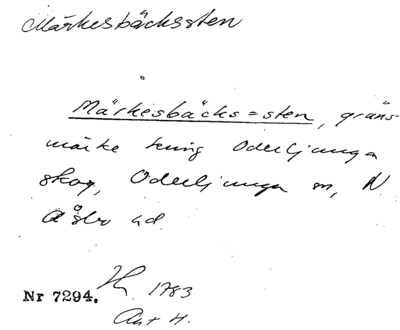 Märkesbäckssten
Märkesbäcks=sten, gräns-
märke kring Oderljunga
skog, Oderljunga sn, N.
Åsbo hd.
Nr 7294. 1783